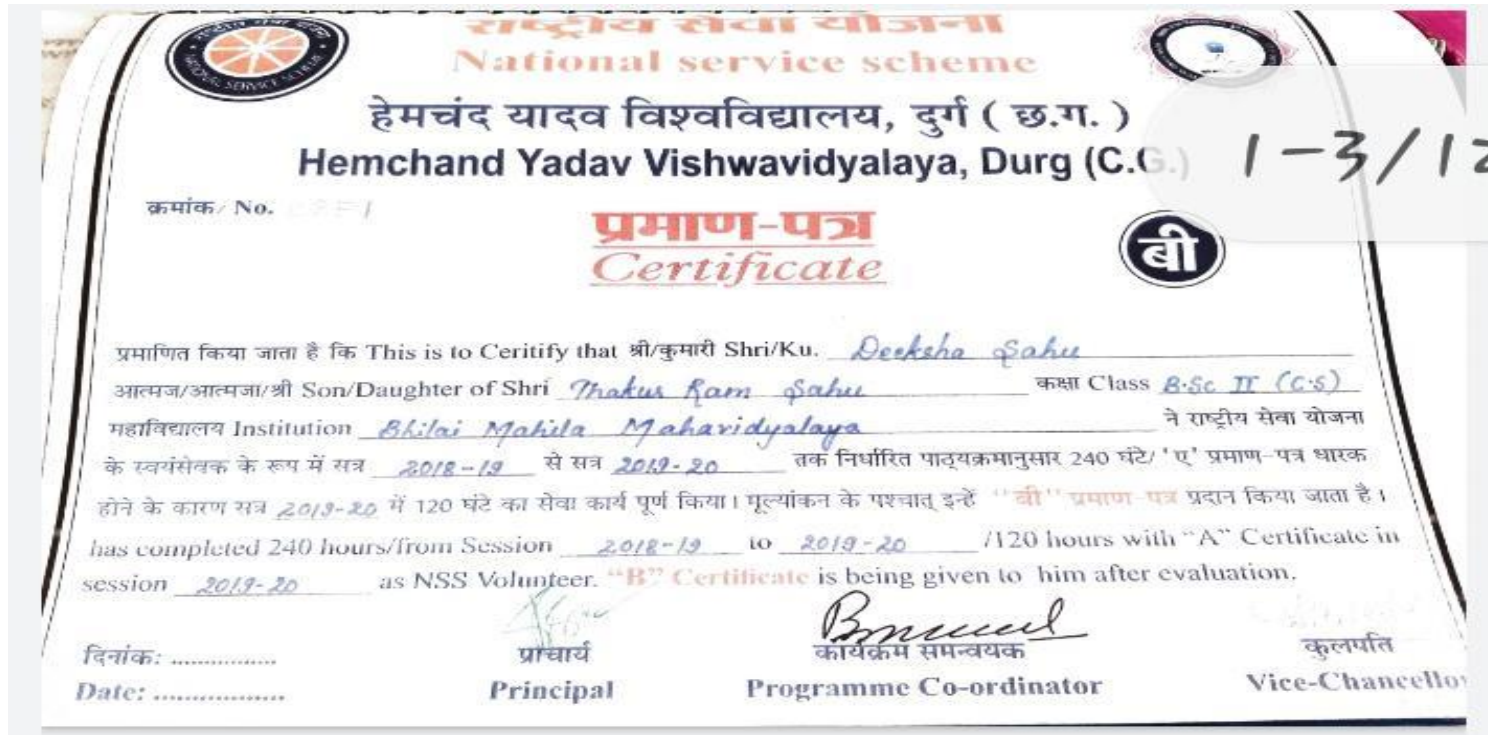 राष्ट्रीय सेवा योजना
National service scheme
हेमचंद यादव विश्वविद्यालय, दुर्ग ( छ.ग. )
Hemchand Yadav Vishwavidyalaya, Durg (C.G.)
1-3/12
क्रमांक/ No.
प्रमाण-पत्र
Certificate
बी
प्रमाणित किया जाता है कि This is to Ceritify that श्री/कुमारी Shri/Ku. Deeksha Sahu
आत्मज/आत्मजा/श्री Son/Daughter of Shri Thakur Ram Sahu कक्षा Class B.Sc II (C.S)
महाविद्यालय Institution Bhilai Mahila Mahavidyalaya ने राष्ट्रीय सेवा योजना
के स्वयंसेवक के रूप में सत्र 2018-19 से सत्र 2019-20 तक निर्धारित पाठ्यक्रमानुसार 240 घंटे/ 'ए' प्रमाण-पत्र धारक
होने के कारण सत्र 2019-20 में 120 घंटे का सेवा कार्य पूर्ण किया। मूल्यांकन के पश्चात् इन्हें "बी" प्रमाण-पत्र प्रदान किया जाता है।
has completed 240 hours/from Session 2018-19 to 2019-20 /120 hours with "A" Certificate in
session 2019-20 as NSS Volunteer. "B" Certificate is being given to him after evaluation.
दिनांक: ................ प्राचार्य कार्यक्रम समन्वयक कुलपति
Date: ................. Principal Programme Co-ordinator Vice-Chancellor